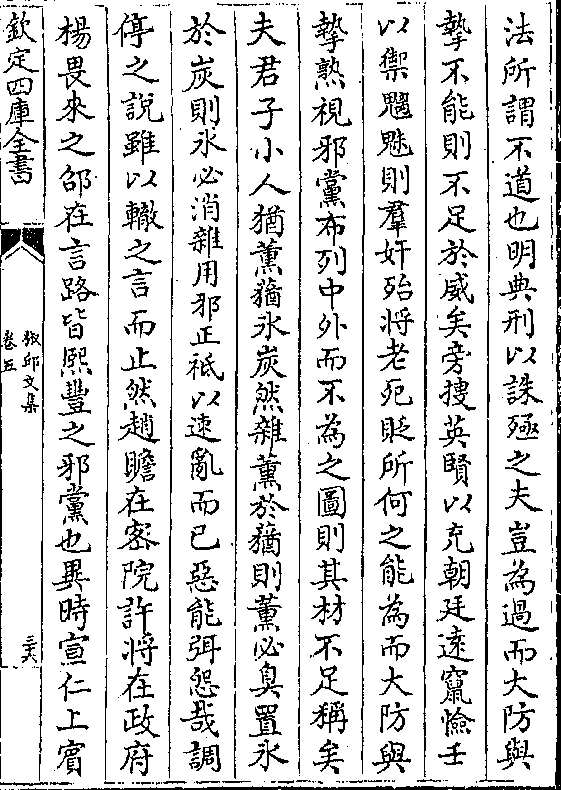 法所謂不道也明典刑以誅殛之夫豈為過而大防與
摯不能則不足於威矣旁搜英賢以充朝廷遠竄憸壬
以禦魑魅則羣奸殆將老死貶所何之能為而大防與
摯熟視邪黨布列中外而不為之圖則其材不足稱矣
夫君子小人猶薰蕕氷炭然雜薰於蕕則薰必臭置氷
於炭則氷必消雜用邪正祗以速亂而已惡能弭怨哉調
停之說雖以轍之言而止然趙瞻在密院許將在政府
楊畏來之邵在言路皆熙豐之邪黨也異時宣仁上賓
欽定四庫全書
椒邱文集
卷五
三六